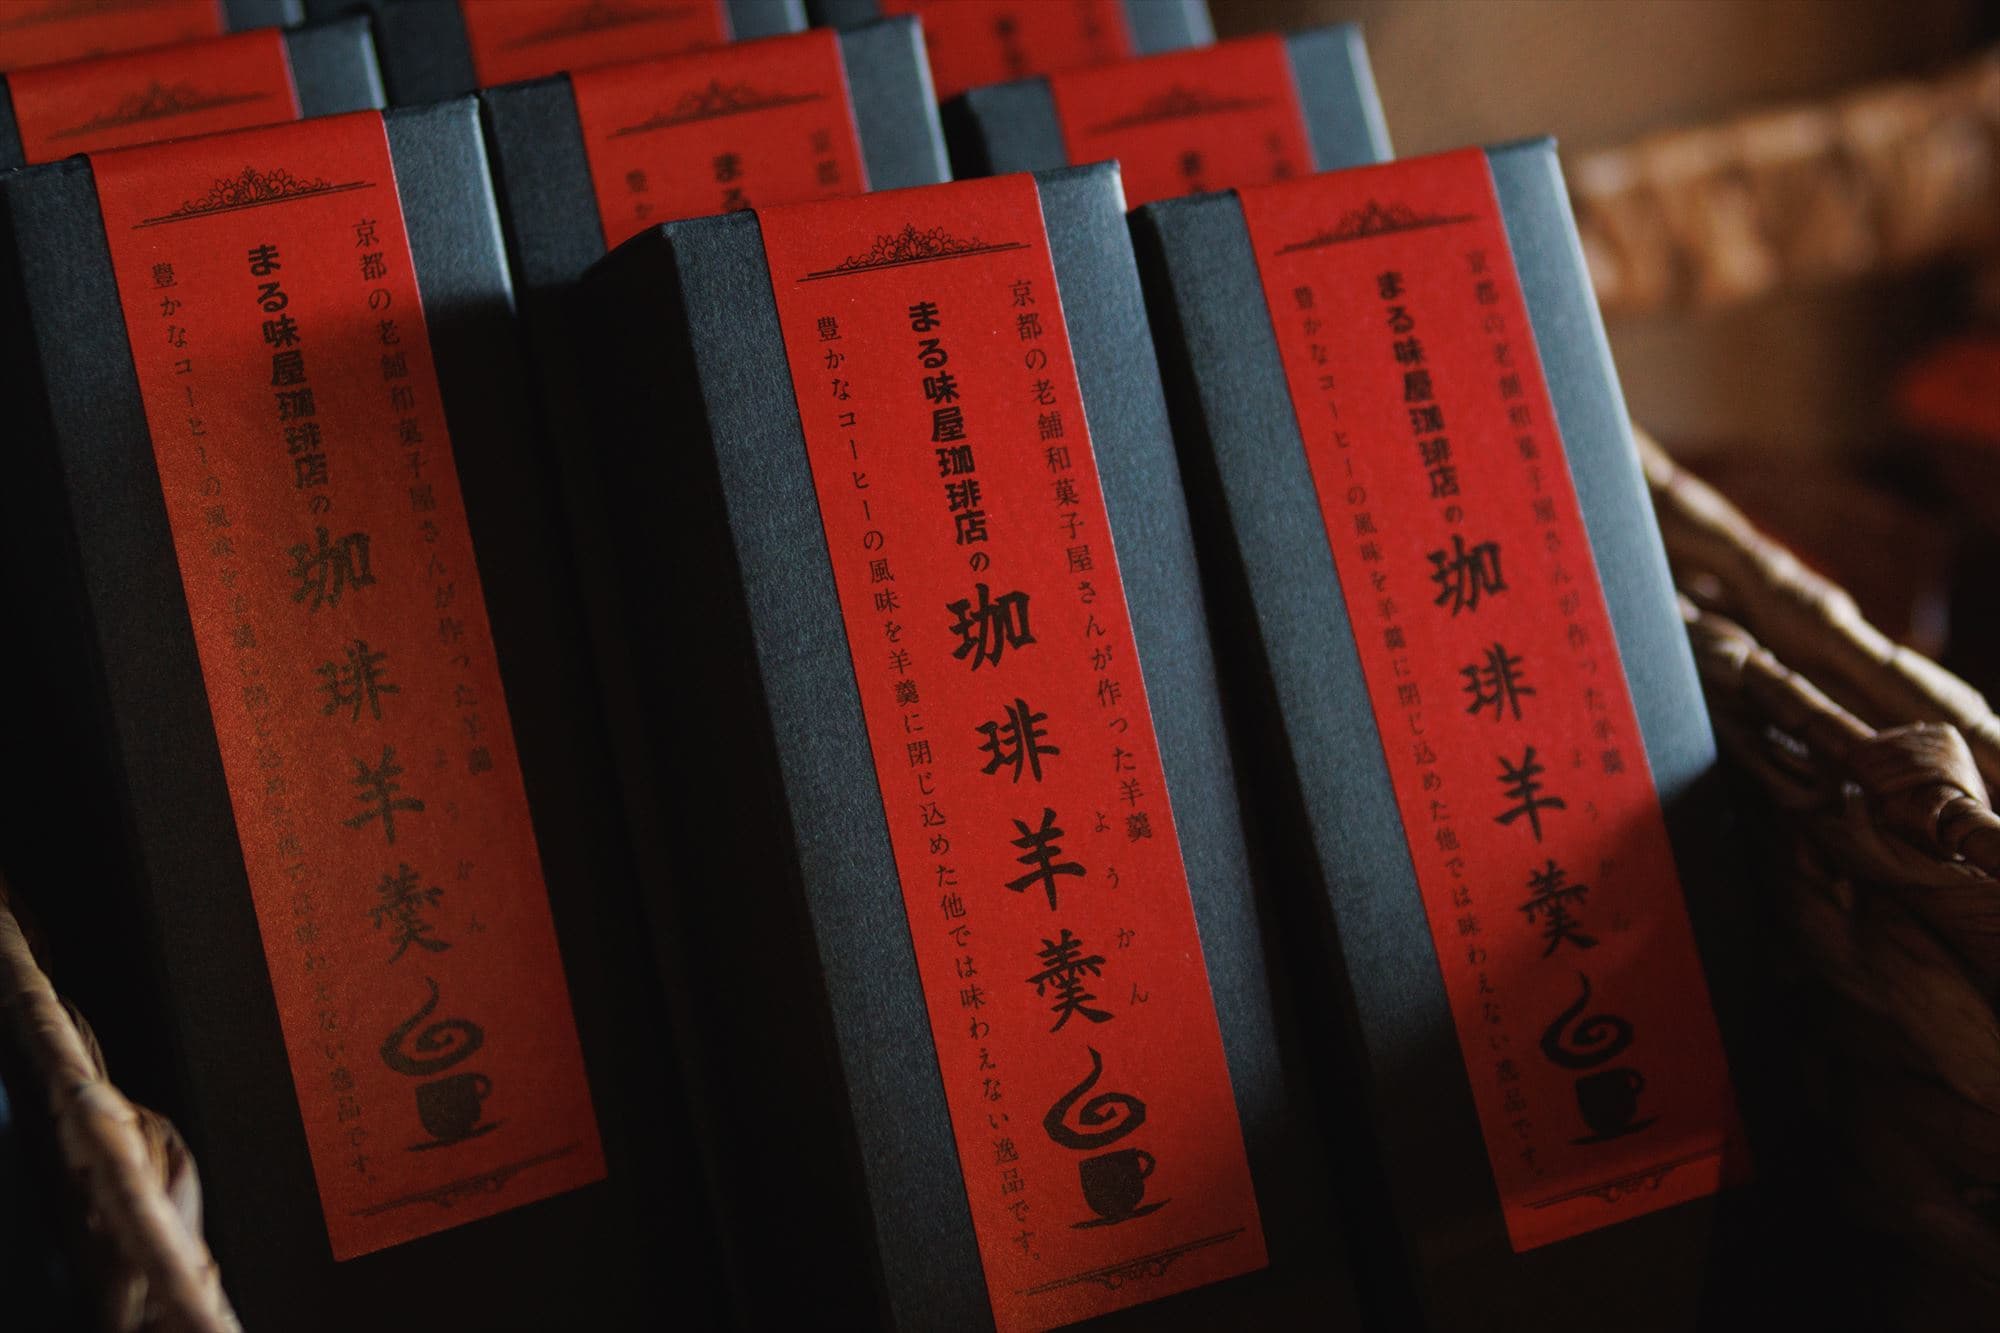 京都の老舗和菓子屋さんが作った羊羹
まる味屋珈琲店の
珈琲羊羹
ようかん
豊かなコーヒーの風味を羊羹に閉じ込めた他では味わえない逸品です。
京都の老舗和菓子屋さんが作った羊羹
まる味屋珈琲店の
珈琲羊羹
ようかん
豊かなコーヒーの風味を羊羹に閉じ込めた他では味わえない逸品です。
京都の老舗和菓子屋さんが作った羊羹
まる味屋珈琲店の
珈琲羊羹
ようかん
豊かなコーヒーの風味を羊羹に閉じ込めた他では味わえない逸品です。
京都
まる
豊か